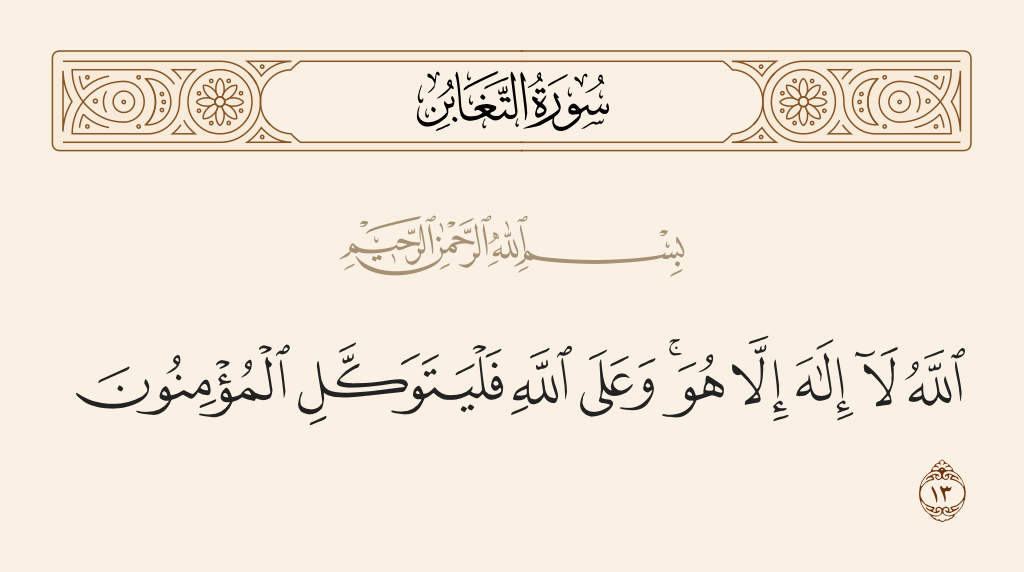 سُورَةُ التَّغَابُنِ
بِسْمِ ٱللَّهِ ٱلرَّحْمَٰنِ ٱلرَّحِيمِ
ٱللَّهُ لَآ إِلَٰهَ إِلَّا هُوَ ۚ وَعَلَى ٱللَّهِ فَلْيَتَوَكَّلِ ٱلْمُؤْمِنُونَ
١٣